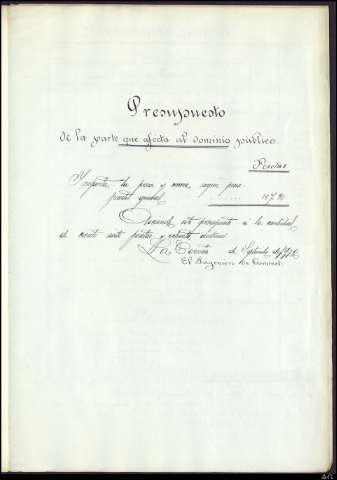 Presupuesto
de la parte que afecta al dominio público.
Pesetas
Importa la presa y muros, según presu-
puesto general 107'80
Asciende este presupuesto a la cantidad
de ciento siete pesetas y ochenta céntimos
La Coruña de Septiembre de
El Ingeniero de Caminos.